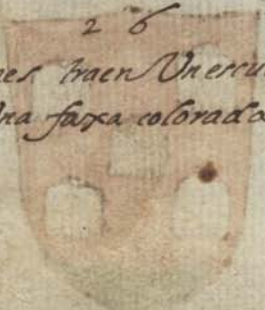 2 6
nes traen Un escu
Una faxa colorada